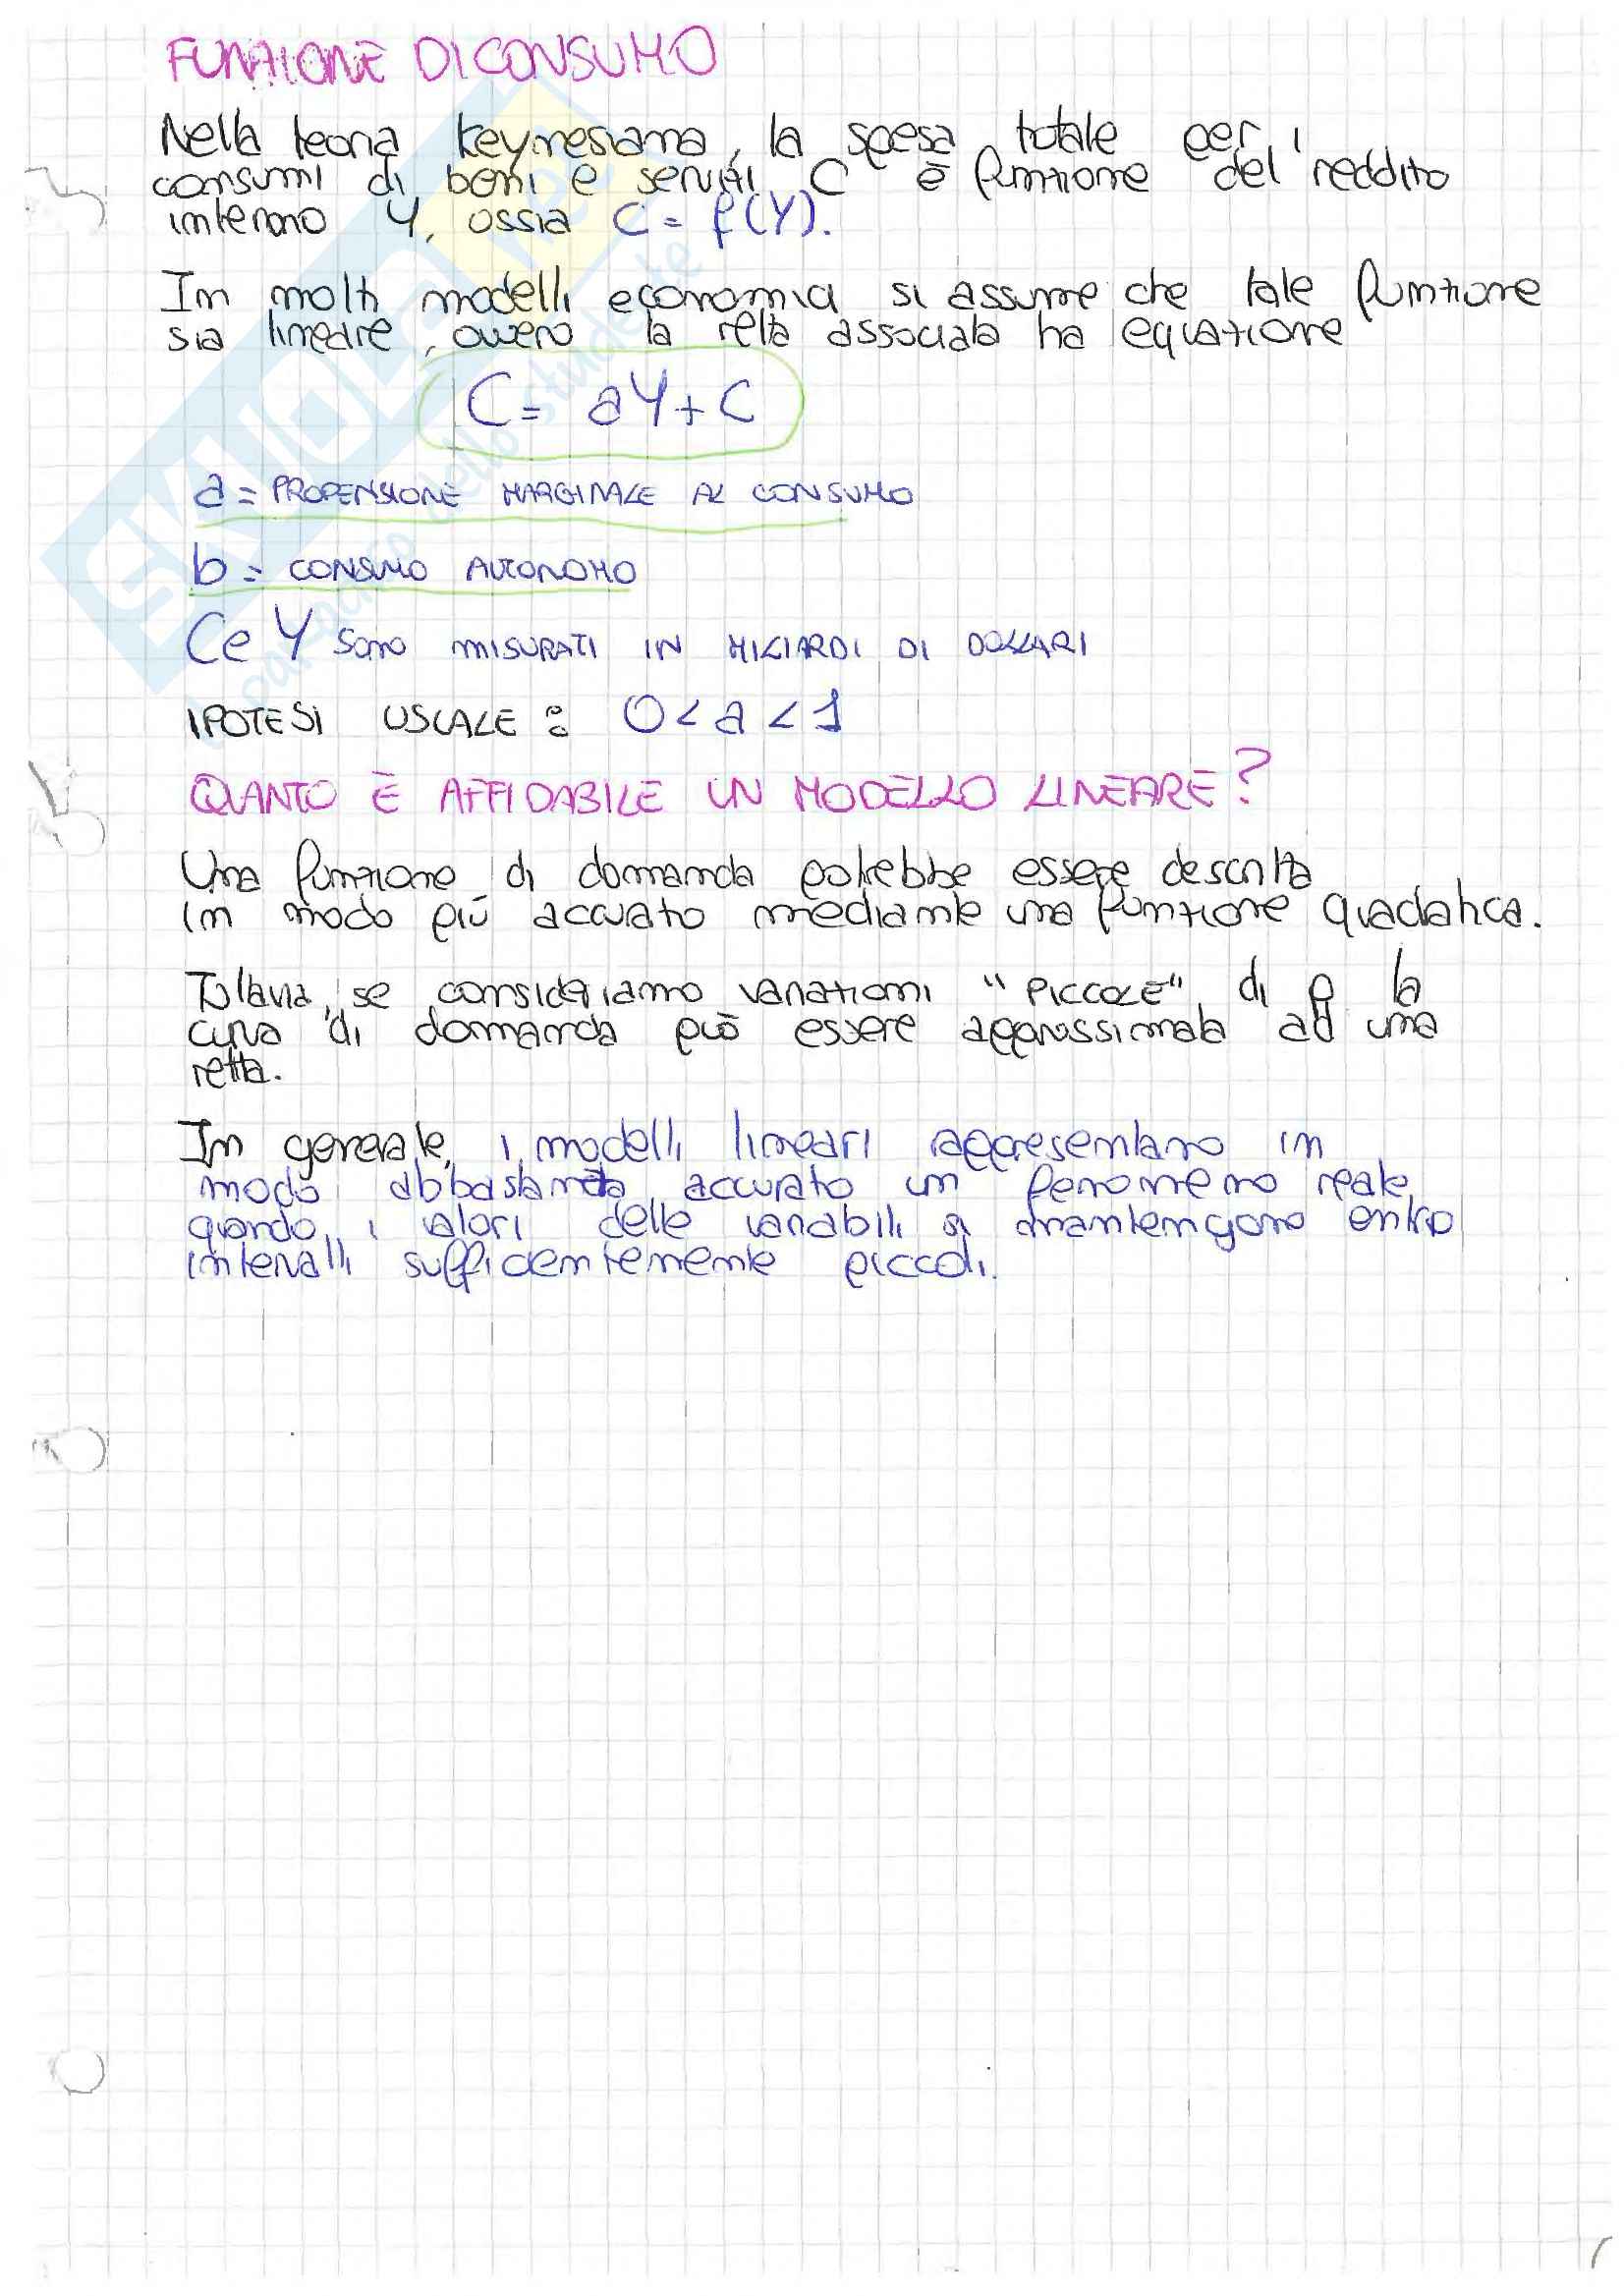 FUNZIONE DI CONSUMO
Nella teoria keynesiana, la spesa totale per i
consumi di beni e servizi C è funzione del reddito
interno Y, ossia C = f(Y).
In molti modelli economici si assume che tale funzione
sia lineare, ovvero la retta associata ha equazione
C = aY + C
a = PROPENSIONE MARGINALE AL CONSUMO
b = CONSUMO AUTONOMO
C e Y sono MISURATI IN MILIARDI DI DOLLARI
IPOTESI USUALE: 0 < a < 1
QUANTO È AFFIDABILE UN MODELLO LINEARE?
Una funzione di domanda potrebbe essere descritta
in modo più accurato mediante una funzione quadratica.
Tuttavia, se consideriamo variazioni "PICCOLE" di p la
curva di domanda può essere approssimata ad una
retta.
In generale, i modelli lineari rappresentano in
modo abbastanza accurato un fenomeno reale
quando i valori delle variabili si mantengono entro
intervalli sufficientemente piccoli.
SKUOLA.net
il paradiso dello studente